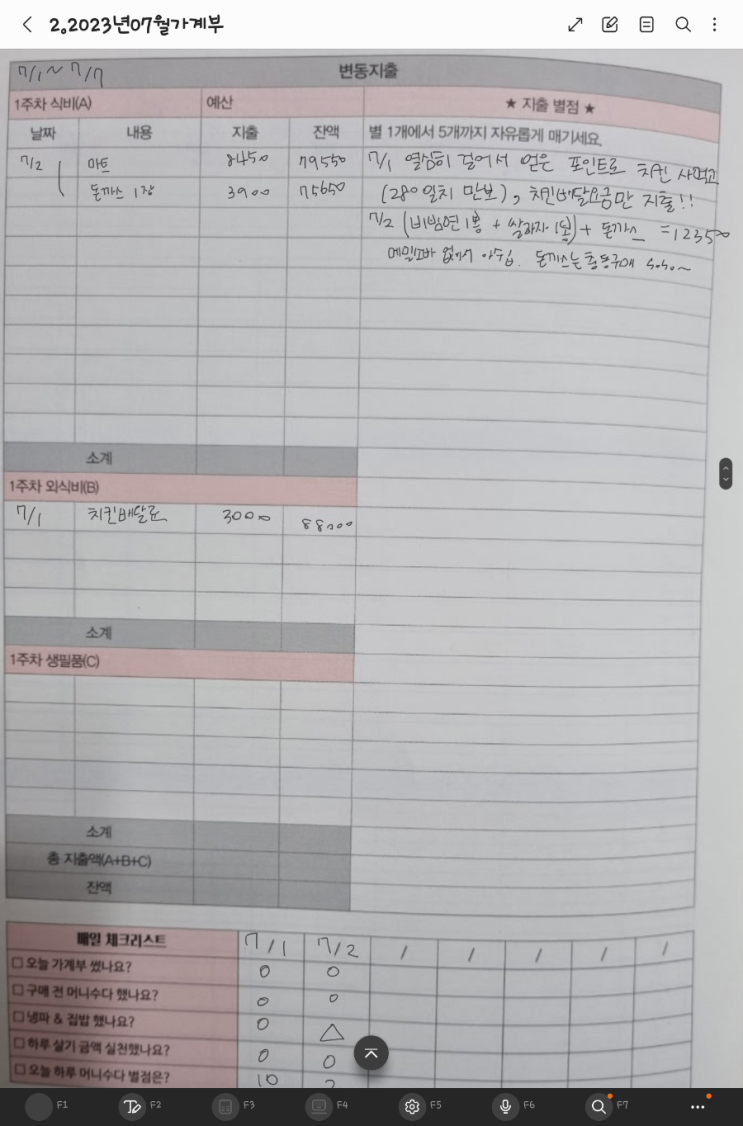 2.2023년07월가계부
7/1 ~ 7/7 변동지출
1주차 식비(A) 예산 ★ 지출 별점 ★
날짜 내용 지출 잔액 별 1개에서 5개까지 자유롭게 매기세요.
7/2 마트 8450 79550 7/1 열심히 걸어서 얻은 포인트로 치킨 사먹고
돈까스 1장 3900 75650 (280일치 만보), 치킨배달요금만 지출!!
7/2 (비빔면1봉 + 쌀과자1봉) + 돈까스 = 12350
메밀소바 없어서 아쉽. 돈까스는 충동구매 소소~
소계
1주차 외식비(B)
7/1 치킨배달료 3000 88000
소계
1주차 생필품(C)
소계
총 지출액(A+B+C)
잔액
매일 체크리스트 7/1 7/2 / / / / /
□ 오늘 가계부 썼나요? O O
□ 구매 전 머니수다 했나요? O O
□ 냉파 & 집밥 했나요? O △
□ 하루 살기 금액 실천했나요? O O
□ 오늘 하루 머니수다 별점은? 10
F1 F2 F3 F4 F5 F6 F7